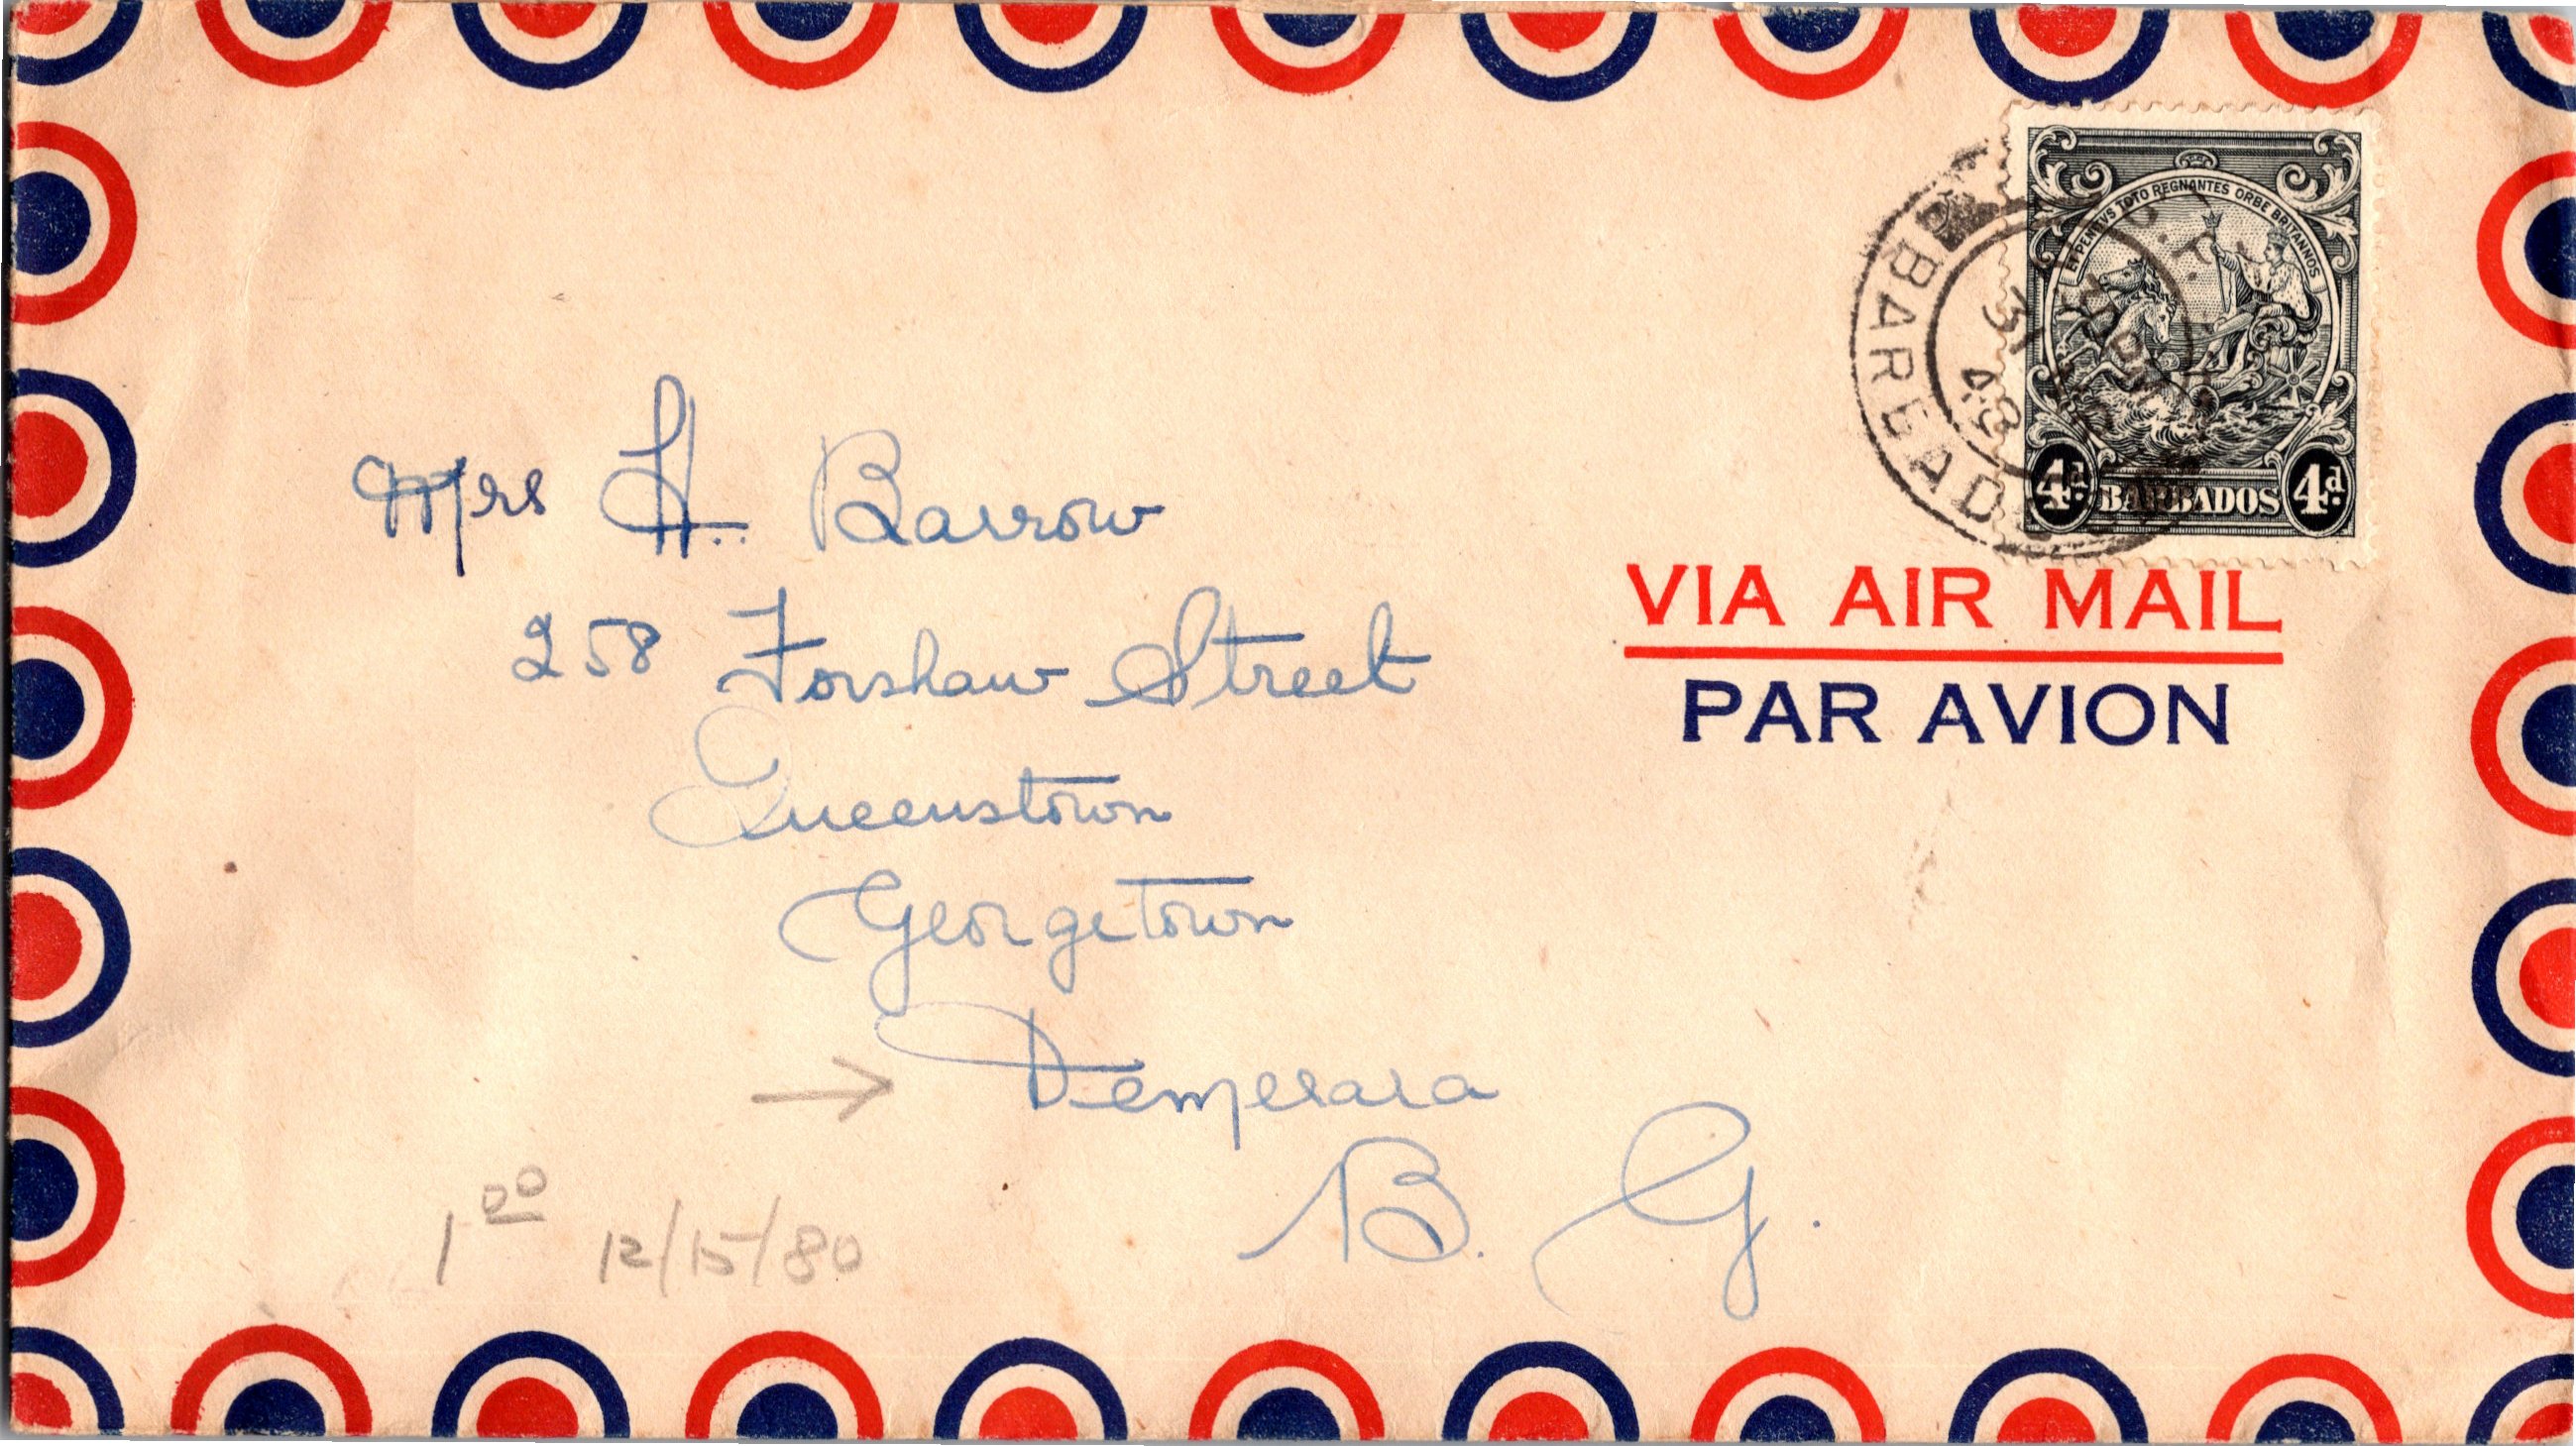 ET PENITVS TOTO REGNANTES ORBE BRITANNOS
G.P.
BARBADOS
31
48
4d. BARBADOS 4d.
VIA AIR MAIL
PAR AVION
Mrs H. Barrow
258 Forshaw Street
Queenstown
Georgetown
→ Demerara
B. G.
1 00 12/15/80